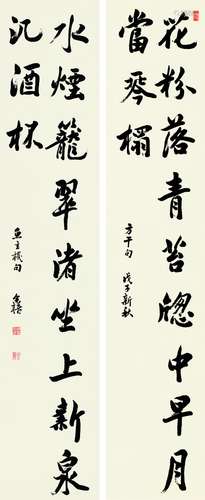 花粉落青苔牕中早月
當琴榻
方干句 戊子新秋
水煙籠翠渚坐上新泉
汎酒杯
魚玄機句